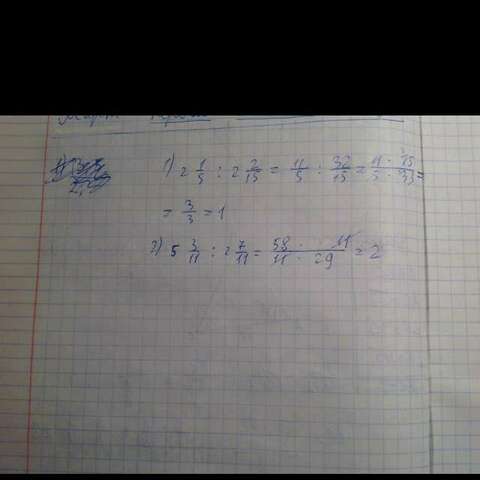 1) 2 1/5 : 2 2/15 = 11/5 : 32/15 = 11 · 15 / 5 · 33 =
= 3/3 = 1
2) 5 3/11 : 2 7/11 = 58 · 11 / 11 · 29 = 2